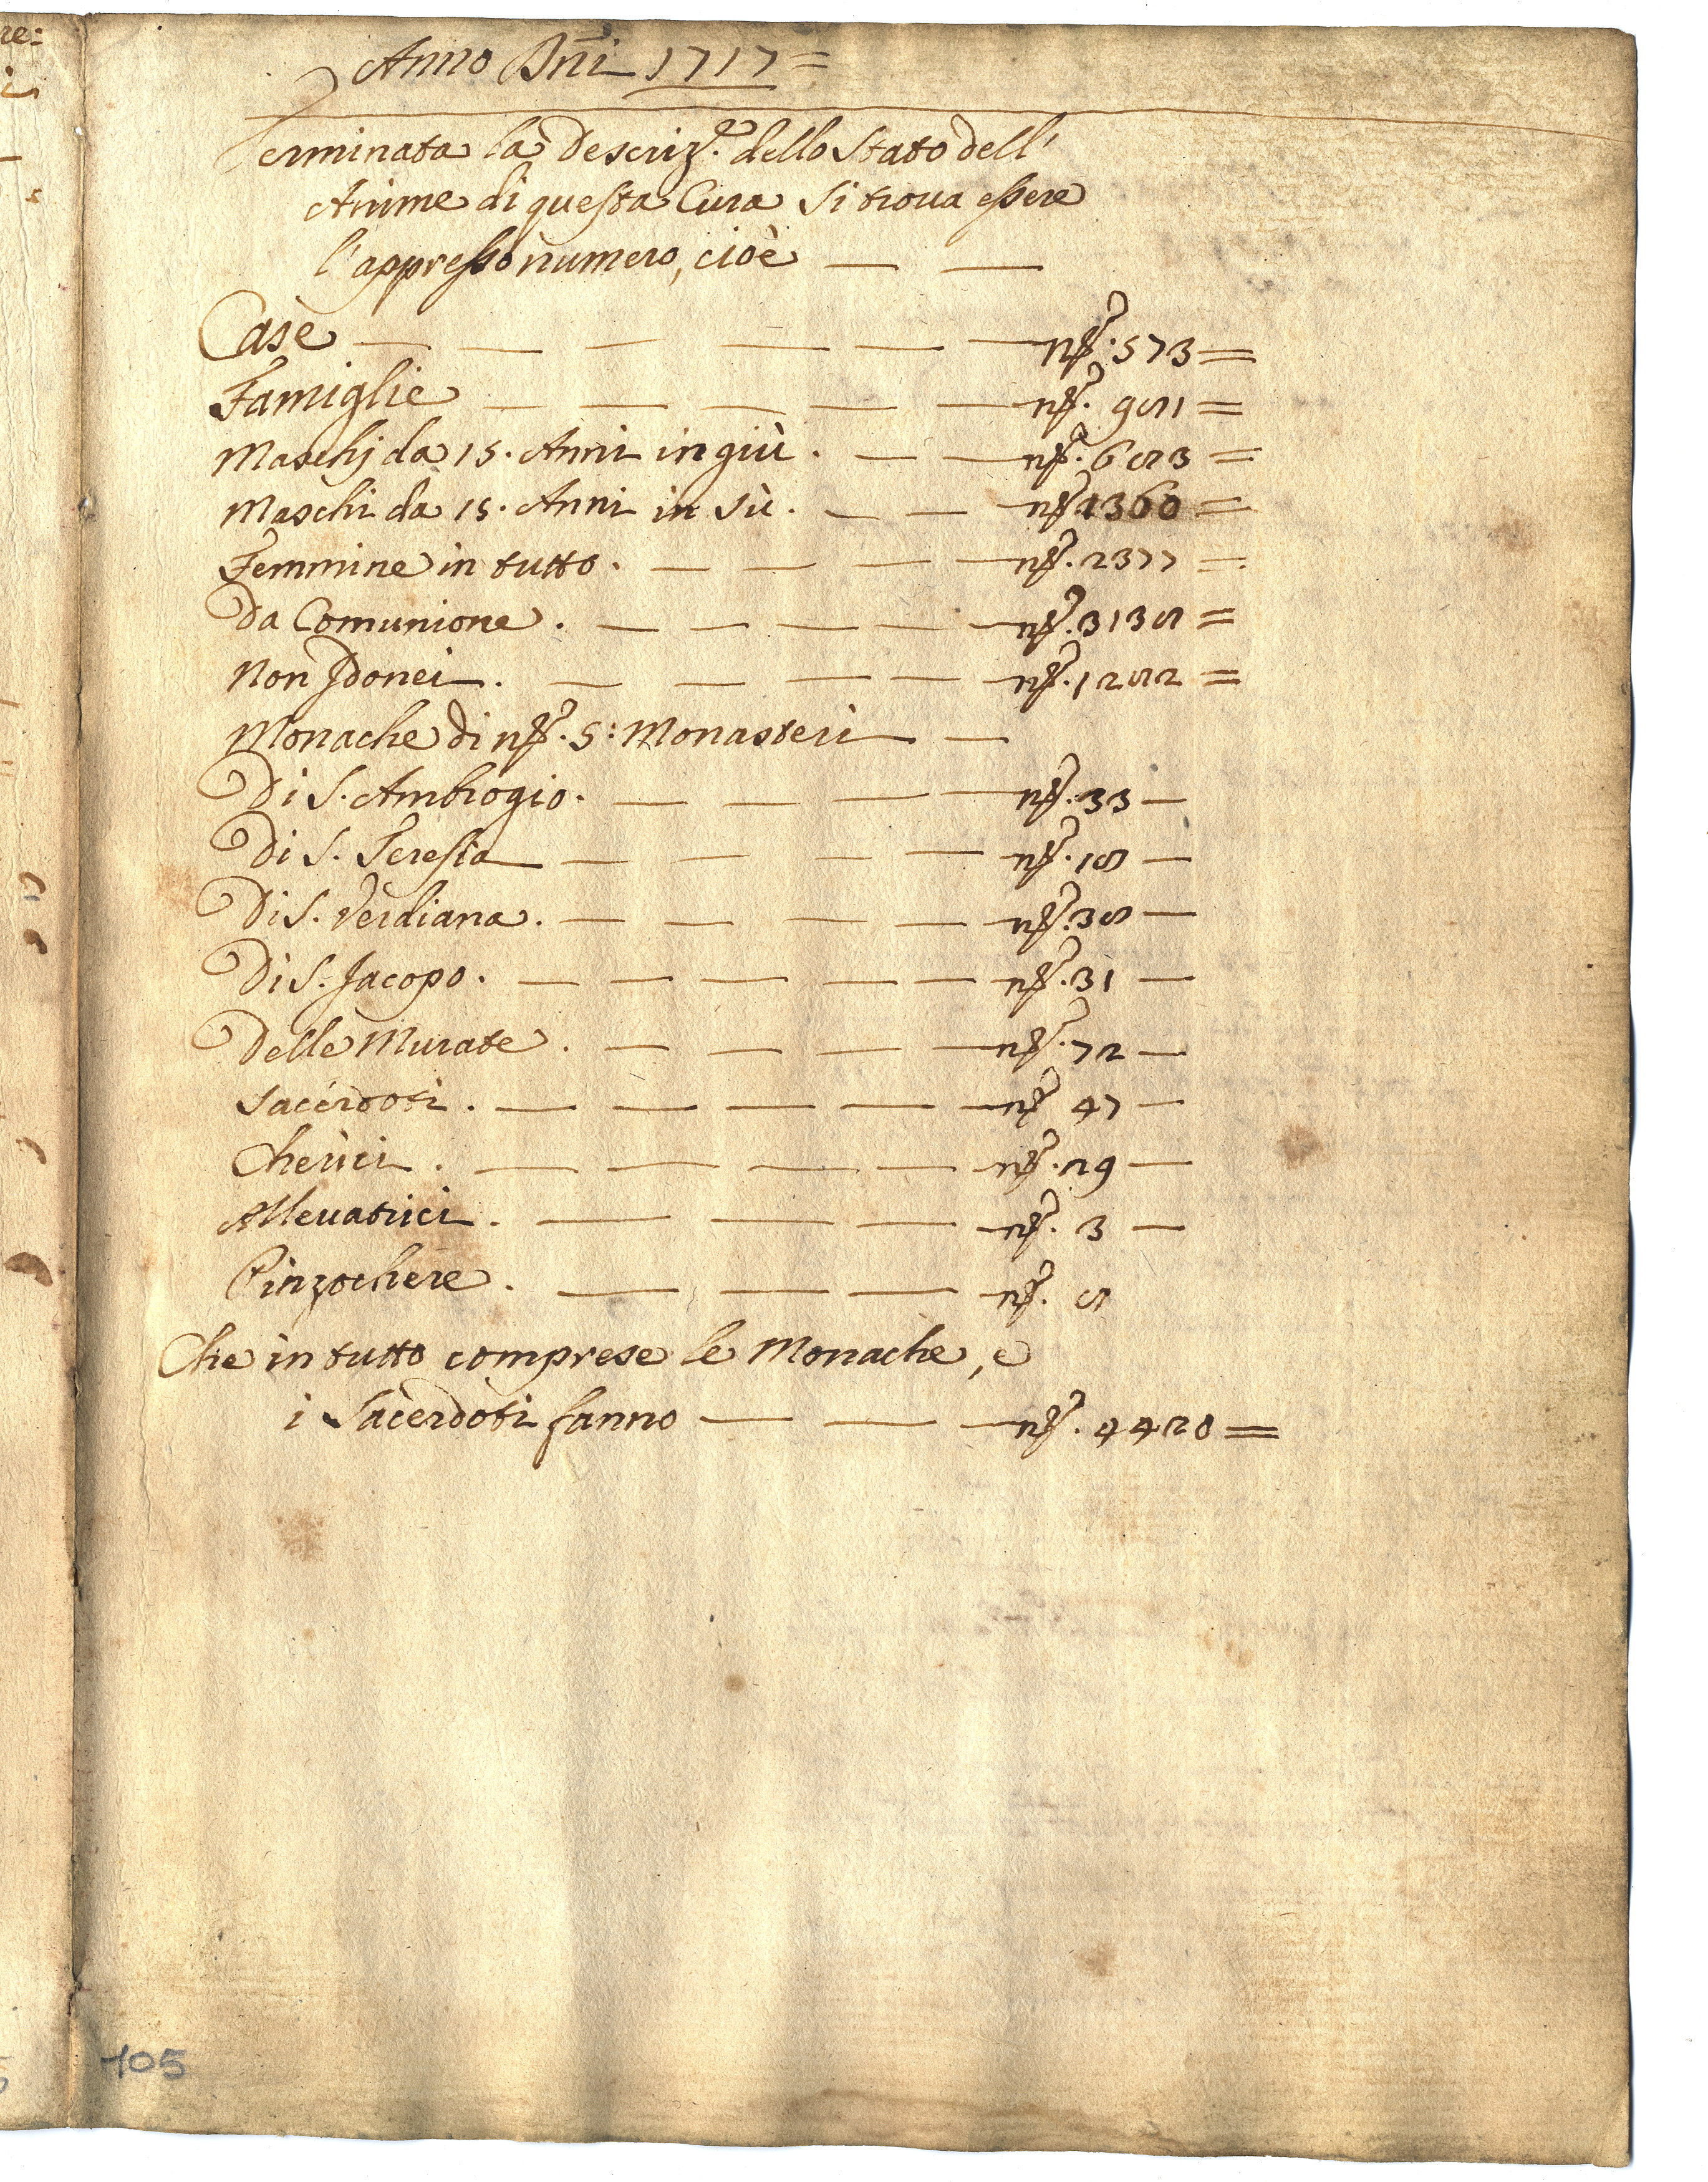 Anno Dñi 1717=
Terminata la Descriz.e dello Stato dell'
Anime di questa Cura si troua essere
l'appresso numero, cioè — —
Case — — — — — — n.º 573 =
Famiglie — — — — — n.º 981 =
Maschj da 15. Anni in giù . — — n.º 683 =
Maschi da 15. Anni in sù . — — n.º 1360 =
Femmine in tutto . — — — — n.º 2377 =
Da Comunione . — — — — — n.º 3138 =
Non Jdonei . — — — — n.º 1282 =
Monache di n.º 5: Monasteri —
Di S. Ambrogio . — — — — n.º 33 —
Di S. Teresia — — — — n.º 18 —
Di S. Verdiana . — — — — n.º 38 —
Di S. Jacopo . — — — — — n.º 31 —
Delle Murate . — — — — n.º 72 —
Sacerdoti . — — — — — n.º 47 —
Cherici . — — — — n.º 26 —
Alleuatrici . — — — — n.º 3 —
Pinzochere . — — — — n.º 8
Che in tutto comprese le Monache, e
i Sacerdoti fanno — — — n.º 4420 =
105